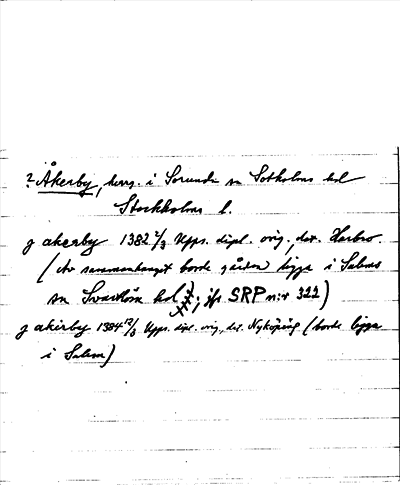 ? Åkerby, herrg. i Sorunda sn Sotholms hd
Stockholms l.
j akerby 1382 2/3 Upps. dipl. orig., dat. Herbro.
(Av sammanhanget borde gården ligga i Salems
sn Svartlösa hd); jfr SRP nr 322)
j akirby 1384 12/3 Upps. dipl. orig., dat. Nyköping (borde ligga
i Salem)